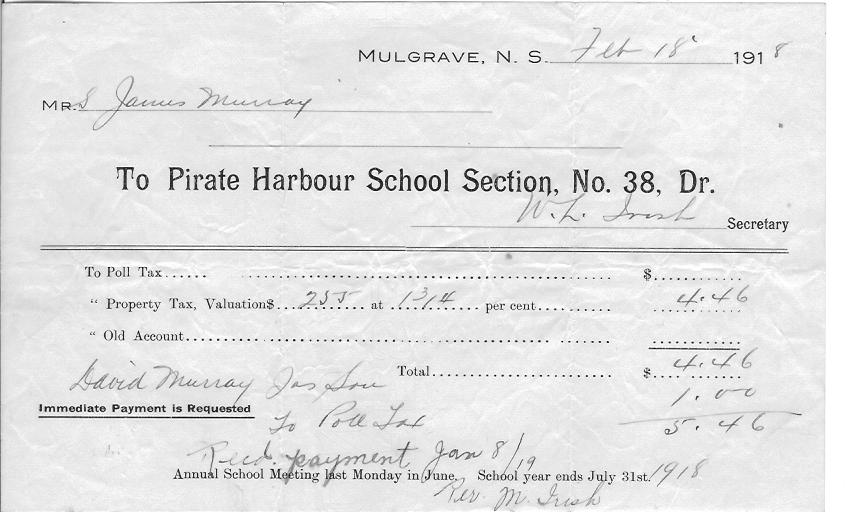 MULGRAVE, N. S. Feb 18 1918
MR.S James Murray
To Pirate Harbour School Section, No. 38, Dr.
W. L. Irish Secretary
To Poll Tax...... $............
" Property Tax, Valuation$ 255 at 1 3/4 per cent.......... 4.46
" Old Account......
Total...... $ 4.46
David Murray Jas Son 1.00
Immediate Payment is Requested
To Poll Tax 5.46
Recd. payment Jan 8/19
Annual School Meeting last Monday in June. School year ends July 31st. 1918
Per. M. Irish